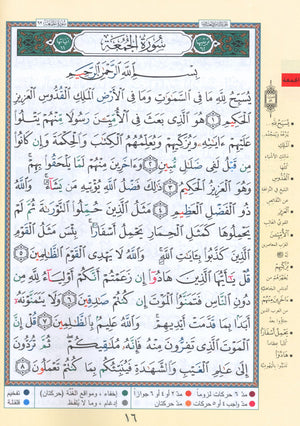 سُورَةُ الْجُمُعَةِ
بِسْمِ اللَّهِ الرَّحْمَٰنِ الرَّحِيمِ
يُسَبِّحُ لِلَّهِ مَا فِي السَّمَٰوَٰتِ وَمَا فِي الْأَرْضِ الْمَلِكِ الْقُدُّوسِ الْعَزِيزِ
الْحَكِيمِ ١ هُوَ الَّذِي بَعَثَ فِي الْأُمِّيِّـۧنَ رَسُولًا مِّنْهُمْ يَتْلُوا۟
عَلَيْهِمْ ءَايَٰتِهِۦ وَيُزَكِّيهِمْ وَيُعَلِّمُهُمُ الْكِتَٰبَ وَالْحِكْمَةَ وَإِن كَانُوا۟
مِن قَبْلُ لَفِي ضَلَٰلٍ مُّبِينٍ ٢ وَءَاخَرِينَ مِنْهُمْ لَمَّا يَلْحَقُوا۟ بِهِمْ
وَهُوَ الْعَزِيزُ الْحَكِيمُ ٣ ذَٰلِكَ فَضْلُ اللَّهِ يُؤْتِيهِ مَن يَشَآءُ وَاللَّهُ
ذُو الْفَضْلِ الْعَظِيمِ ٤ مَثَلُ الَّذِينَ حُمِّلُوا۟ التَّوْرَىٰةَ ثُمَّ لَمْ
يَحْمِلُوهَا كَمَثَلِ الْحِمَارِ يَحْمِلُ أَسْفَارًۢا بِئْسَ مَثَلُ الْقَوْمِ
الَّذِينَ كَذَّبُوا۟ بِـَٔايَٰتِ اللَّهِ وَاللَّهُ لَا يَهْدِي الْقَوْمَ الظَّٰلِمِينَ ٥
قُلْ يَٰٓأَيُّهَا الَّذِينَ هَادُوٓا۟ إِن زَعَمْتُمْ أَنَّكُمْ أَوْلِيَآءُ لِلَّهِ مِن
دُونِ النَّاسِ فَتَمَنَّوُا۟ الْمَوْتَ إِن كُنتُمْ صَٰدِقِينَ ٦ وَلَا يَتَمَنَّوْنَهُۥٓ
أَبَدًۢا بِمَا قَدَّمَتْ أَيْدِيهِمْ وَاللَّهُ عَلِيمٌۢ بِالظَّٰلِمِينَ ٧ قُلْ إِنَّ
الْمَوْتَ الَّذِي تَفِرُّونَ مِنْهُ فَإِنَّهُۥ مُلَٰقِيكُمْ ثُمَّ تُرَدُّونَ
إِلَىٰ عَٰلِمِ الْغَيْبِ وَالشَّهَٰدَةِ فَيُنَبِّئُكُم بِمَا كُنتُمْ تَعْمَلُونَ ٨
مد ٦ حركات لزوماً مد ٢ أو ٤ أو ٦ جوازاً إخفاء، ومواقع الغُنَّة (حركتان) تفخيم
مد واجب ٤ أو ٥ حركات مد حركتان إدغام، وما لا يُلفظ قلقلة
١٦